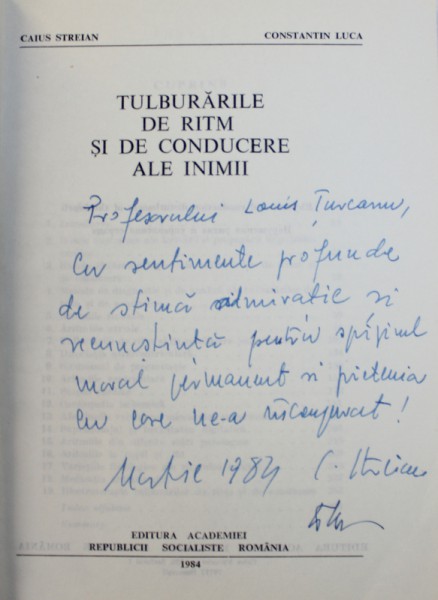 CAIUS STREIAN CONSTANTIN LUCA
TULBURĂRILE
DE RITM
ȘI DE CONDUCERE
ALE INIMII
Profesorului Louis Țurcanu,
Cu sentimente profunde
de stimă admirație și
recunoștință pentru spijinul
moral permanent si prietenia
cu care ne-a înconjurat!
Martie 1984 C. Streian
EDITURA ACADEMIEI
REPUBLICII SOCIALISTE ROMÂNIA
1984